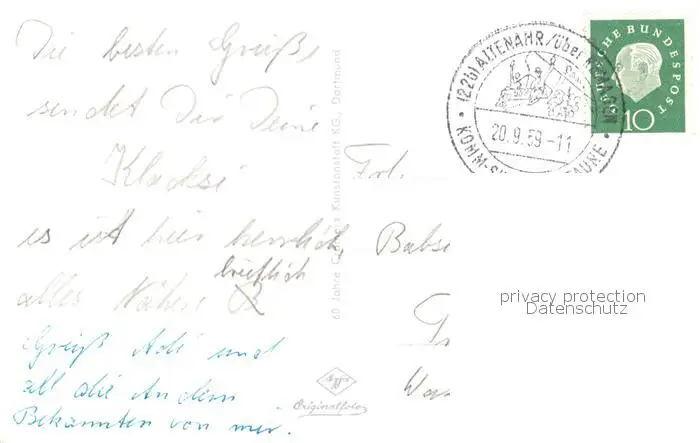 Die besten Grüße
sendet Dir Deine
Klacksi
es ist hier herrlich,
brieflich
alles Nähere
Grüß Adi und
all die Andern
Bekannten von mir.
60 Jahre Cramers Kunstanstalt KG., Dortmund
Frl.
Babse
(22b) ALTENAHR/über REMAGEN
20.9.59-11
DEUTSCHE BUNDESPOST
10
privacy protection
Datenschutz
Agfa
Originalfoto